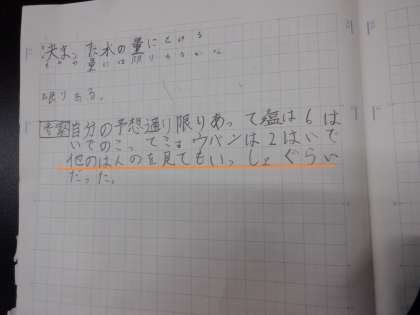 決まった水の量にとける
ものの量には限りがあるか
限りある。
考察 自分の予想通り限りあって塩は6は
いでのこってミョウバンは2はいで
他のはんのを見てもいっしょぐらい
だった。